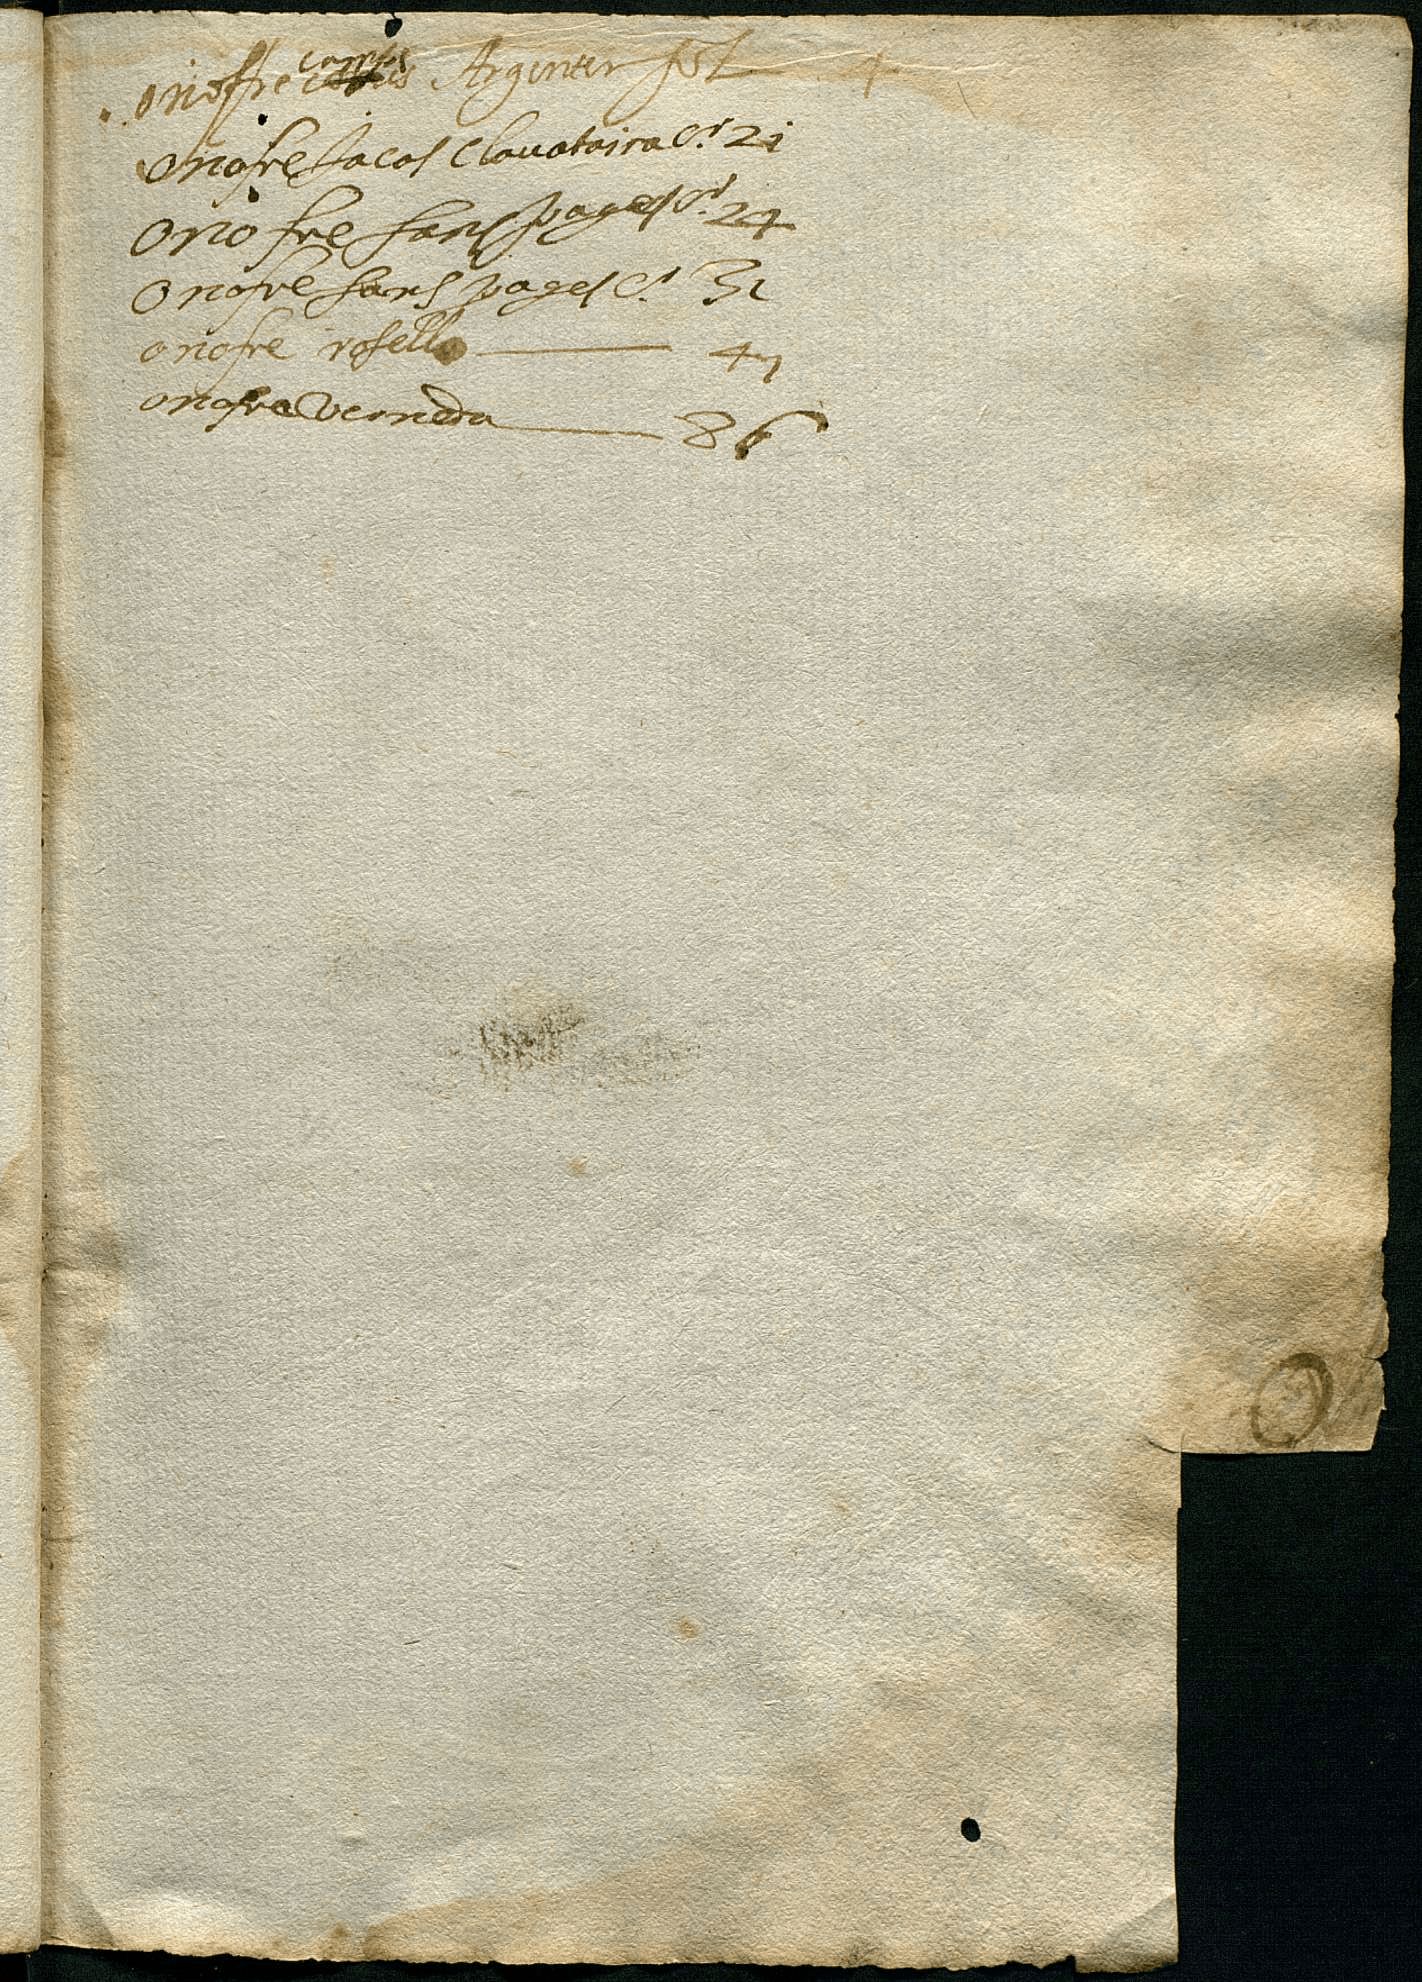 onoffre camps Argenter fol 4
onofre Jacas Clauataira Cr. 21
onofre sans pages Cr. 24
onofre sans pages Cr. 31
onofre rosello 47
onofre Verneda 86
O